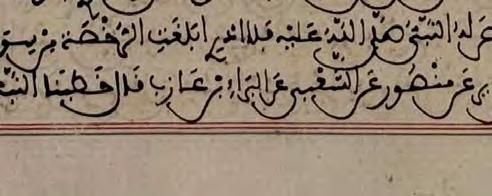 له النبي صلى الله عليه فلا ادري ابلغت الرخصة من
عن منصور عن الشعبي عن البراء بن عازب قال خطبنا النبي